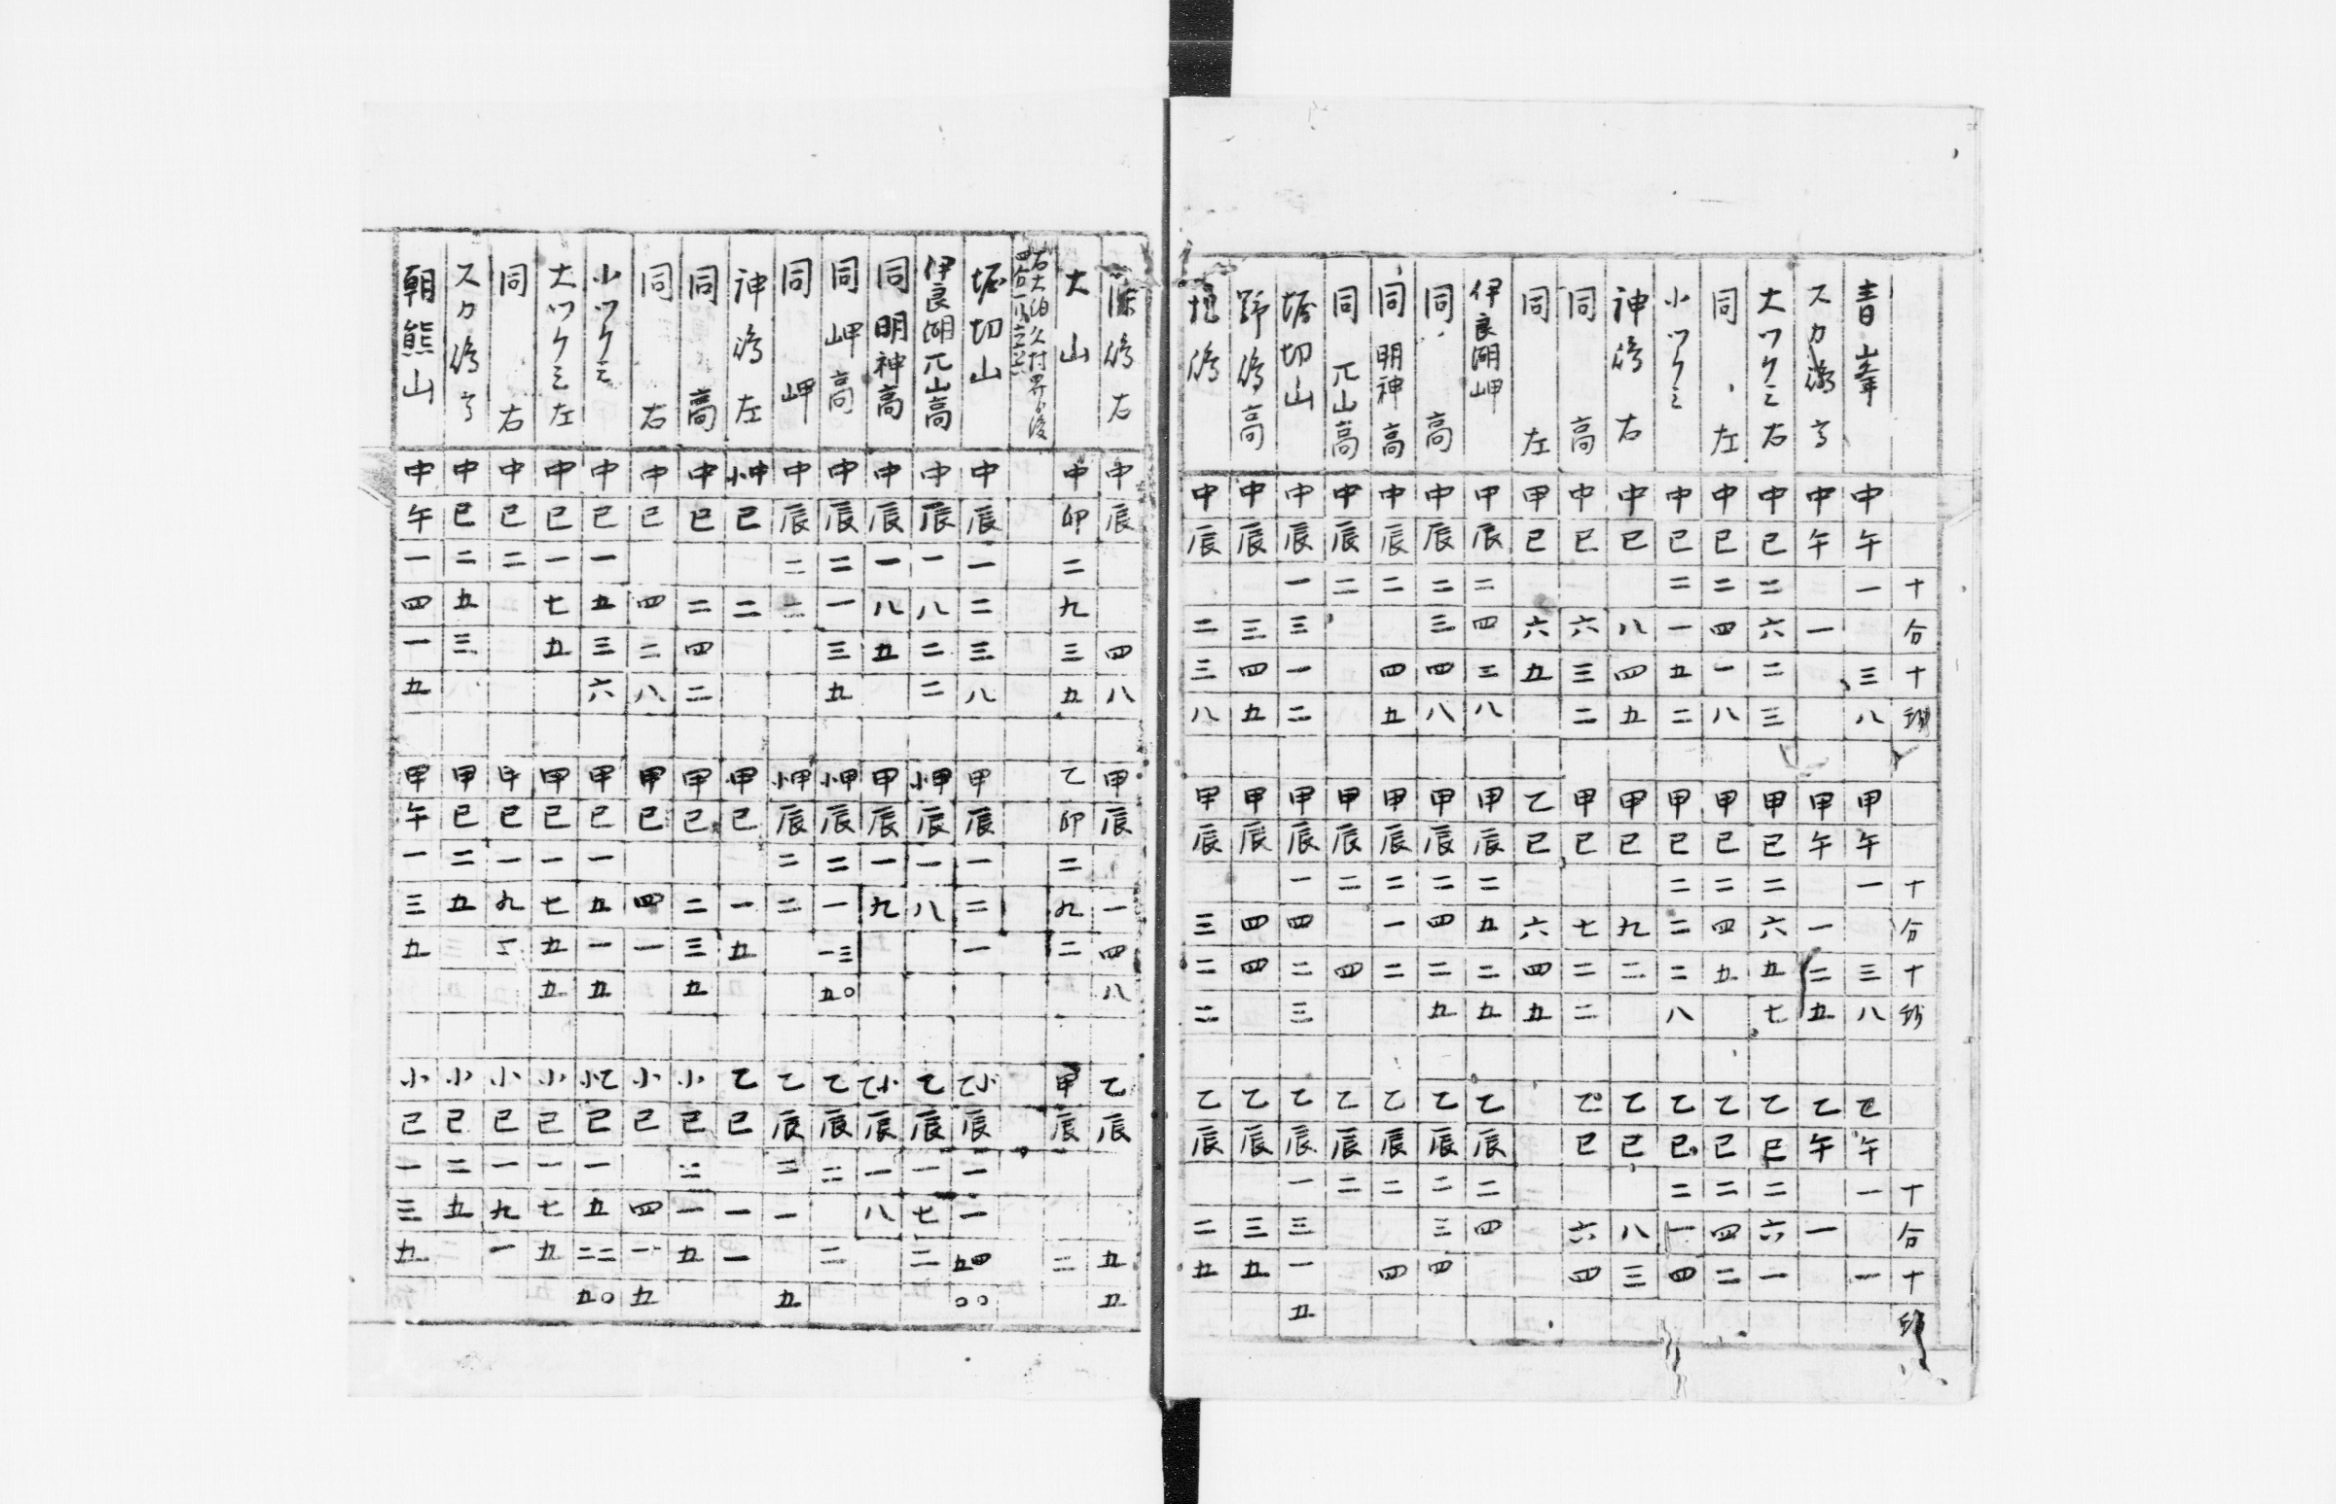 十分十秒 十分十秒 十分十秒
青峯 中午一三八 甲午一三八 乙午一一
スカ嶋 中午一 甲午一二五 乙午一
大ツクミ右 中巳二六二三 甲巳二六五七 乙巳二六一
同左 中巳二四一八 甲巳二四五 乙巳二四二
小ツクミ 中巳二一五二 甲巳二二二八 乙巳二一四
神嶋右 中巳八四五 甲巳九二 乙巳八三
同高 中巳六三二 甲巳七二二 乙巳六四
同左 甲巳六五 乙巳六四五
伊良湖岬 甲辰二四三八 甲辰二五二五 乙辰二四
同高 中辰二三四八 甲辰二四二五 乙辰二三四
同明神高 中辰二四五 甲辰二一二 乙辰二四
同兀山高 中辰二 甲辰二四 乙辰二
堀切山 中辰一三一二 甲辰一四二三 乙辰一三一五
野嶋高 中辰三四五 甲辰四四 乙辰三五
嶋 中辰二三八 甲辰三二二 乙辰二五
篠嶋右 中辰四八 甲辰一四八 乙辰五五
大山 中卯二九三五 乙卯二九二 甲辰二
右大泊久村界後
堀切山 中辰一二三八 甲辰一二一 乙小辰一一五四〇〇
伊良湖兀山高 中辰一八二二 小甲辰一八 乙辰一七二
同明神高 中辰一八五 甲辰一九 乙小辰一八
同岬高 中辰二一三五 小甲辰二一一三五〇 乙辰二二
同岬 中辰二二 小甲辰二二 乙辰二一五
神嶋左 小中巳二 甲巳一五 乙巳一一
同高 中巳二四二 甲巳二三五 小巳二一五
同右 中巳四二八 甲巳四一 小巳四一五
小ツクミ 中巳一五三六 甲巳一五一五 小乙巳一五二二五〇
大ツクミ左 中巳一七五 甲巳一七五五 小巳一七五
同右 中巳二 甲巳一九二 小巳一九一
スカ嶋 中巳二五三 甲巳二五 小巳二五
朝熊山 中午一四一五 甲午一三五 小巳一三五